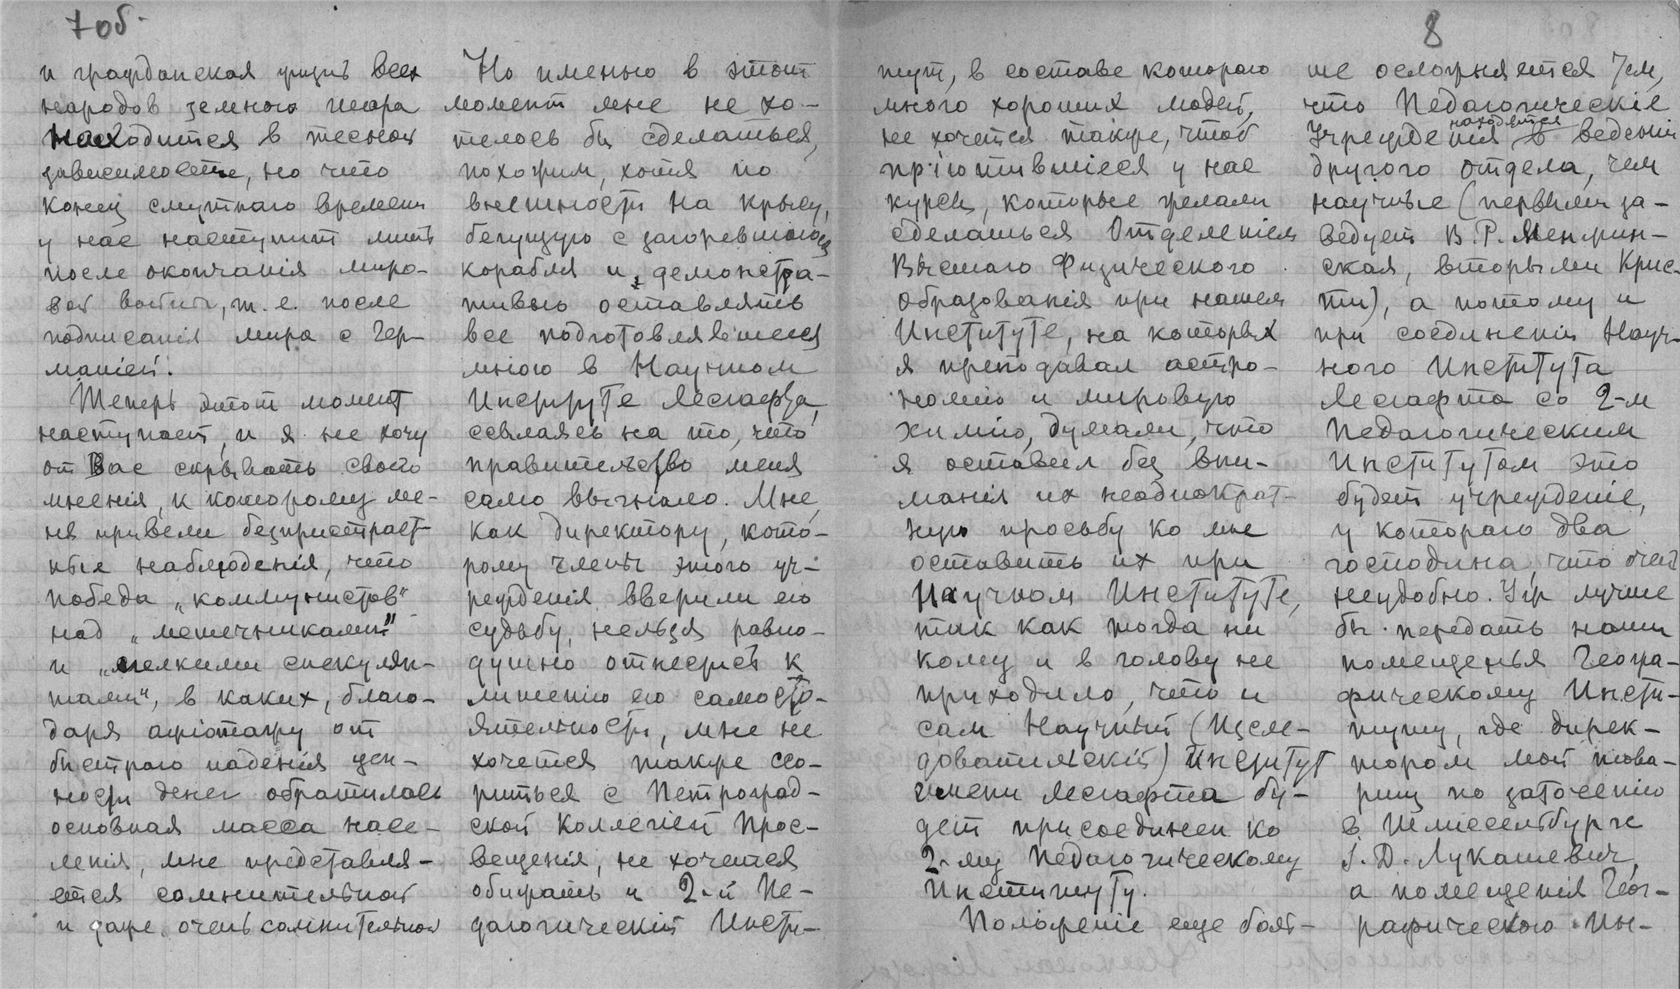 7 об.
и гражданская жизнь всех
народов земного шара
находится в тесной
зависимости, но что
конец смутного времени
у нас наступит лишь
после окончанія миро-
вой войны, т. е. после
подписанія мира с Гер-
маніей.
Теперь этот момент
наступает, и я не хочу
от Вас скрывать своего
мненія, к которому ме-
ня привели безпристраст-
ные наблюденія, что
победа „коммунистов"
над „мешечниками"
и „мелкими спекулян-
тами", в каких, благо-
даря ажіотажу от
быстраго паденія цен-
ности денег обратилась
основная масса насе-
ленія, мне представля-
ется сомнительной
и даже очень сомнительной
Но именно в этот
момент мне не хо-
телось бы сделаться,
похожим, хотя по
внешности на крысу,
бегущую с загоревшагося
корабля и демонстра-
тивно оставлять
все подготовлявшееся
мною в Научном
Институте Лесгафта,
ссылаясь на то, что
правительство меня
само выгнало. Мне,
как директору, кото-
рому члены этого уч-
режденія вверили его
судьбу, нельзя равно-
душно отнестись к
лишенію его самосто-
ятельности, мне не
хочется также ссо-
риться с Петроград-
ской Коллегией Прос-
вещенія, не хочется
обижать и 2-й Пе-
дагогическій Инсти-
8
тут, в составе котораго
много хороших людей,
не хочется также, чтоб
пріютившіеся у нас
курсы, которые желали
сделаться Отделеніем
Высшаго Физического
образованія при нашем
Институте, на которых
я преподавал астро-
номію и мировую
химію, думали, что
я оставил без вни-
манія их неоднократ-
ную просьбу ко мне
оставить их при
Научном Институте,
так как тогда ни
кому и в голову не
приходило, что и
сам Научный (Иссле-
довательскій) Институт
имени Лесгафта бу-
дет присоединен ко
2-му Педагогическому
Институту.
Положеніе еще боль-
ше осложняется тем,
что Педагогическіе
Учрежденія находятся в веденіи
другого отдела, чем
научные (первыми за-
ведует В. Р. Менжин-
ская, вторыми Крис-
ти), а потому и
при соединеніи Науч-
ного Института
Лесгафта со 2-м
Педагогическим
Институтом это
будет учрежденіе,
у котораго два
господина, что очень
неудобно. Уж лучше
бы передать наши
помещенья Геогра-
фическому Инсти-
туту, где дирек-
тором мой това-
рищ по заточенію
в Шлиссельбурге
І. Д. Лукашевич,
а помещенія Геог-
рафическаго Ин-